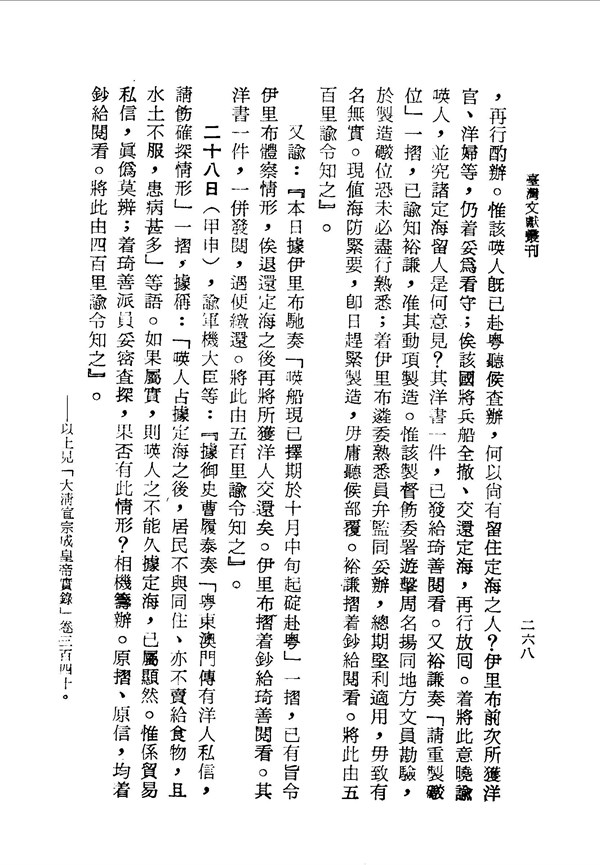 臺灣文獻叢刊
二六八
，再行酌辦。惟該㖦人旣已赴粤聽候查辦，何以尙有留住定海之人？伊里布前次所獲洋
官、洋婦等，仍着妥爲看守；俟該國將兵船全撤、交還定海，再行放囘。着將此意曉諭
㖦人，並究諸定海留人是何意見？其洋書一件，已發給琦善閱看。又裕謙奏「請重製礮
位」一摺，已諭知裕謙，准其動項製造。惟該製督飭委署遊擊周名揚同地方文員勘驗，
於製造礮位恐未必盡行熟悉；着伊里布遴委熟悉員弁監同妥辦，總期堅利適用，毋致有
名無實。現値海防緊要，卽日趕緊製造，毋庸聽候部覆。裕謙摺着鈔給閱看。將此由五
百里諭令知之』。
又諭：『本日據伊里布馳奏「㖦船現已擇期於十月中旬起碇赴粤」一摺，已有旨令
伊里布體察情形，俟退還定海之後再將所獲洋人交還矣。伊里布摺着鈔給琦善閱看。其
洋書一件，一併發閱，遇便繳還。將此由五百里諭令知之』。
二十八日（甲申），諭軍機大臣等：『據御史曹履泰奏「粤東澳門傳有洋人私信，
請飭確探情形」一摺，據稱：「㖦人占據定海之後，居民不與同住、亦不賣給食物，且
水土不服，患病甚多」等語。如果屬實，則㖦人之不能久據定海，已屬顯然。惟係貿易
私信，眞僞莫辨；着琦善派員妥密查探，果否有此情形？相機籌辦。原摺、原信，均着
鈔給閱看。將此由四百里諭令知之』。
——以上見「大淸宣宗成皇帝實錄」卷三百四十。